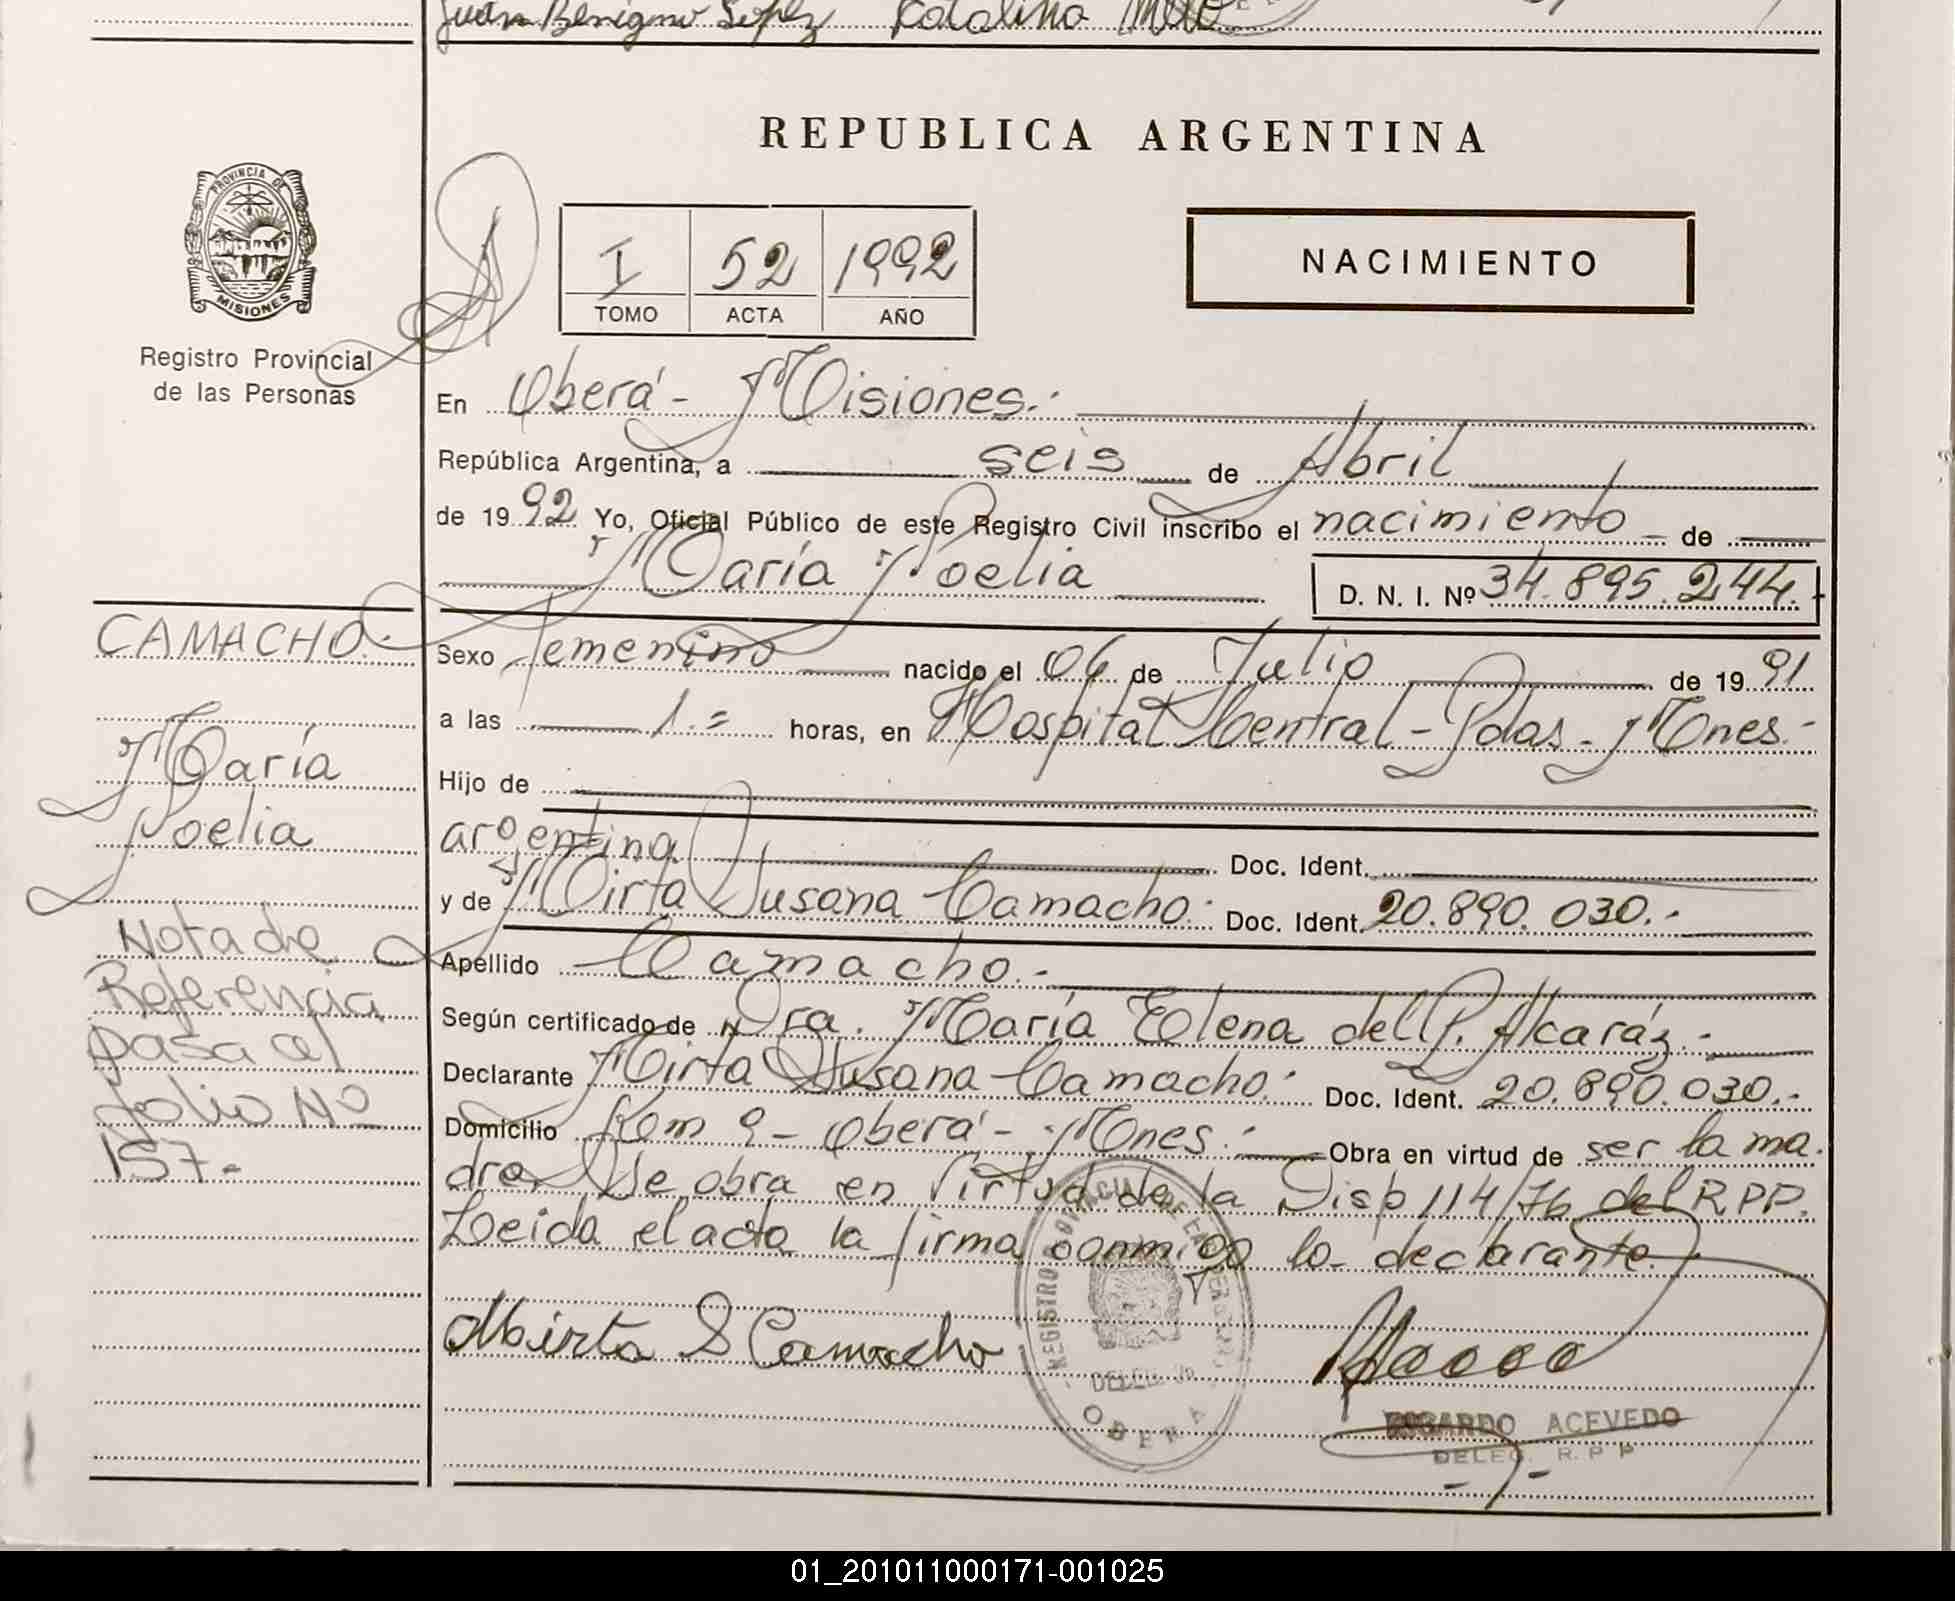 Juan Benigno Lopez Catalina
REPUBLICA ARGENTINA
PROVINCIA DE MISIONES
Registro Provincial
de las Personas
I 52 1992
TOMO ACTA AÑO
NACIMIENTO
En Oberá - Misiones.-
República Argentina, a seis de Abril
de 1992 Yo, Oficial Público de este Registro Civil inscribo el nacimiento de
María Noelia D. N. I. Nº 34.895.244.-
Sexo Femenino nacido el 06 de Julio de 1991
a las 1.= horas, en Hospital Central - Pdas - Mnes.-
Hijo de
argentina Doc. Ident.
y de Mirta Susana Camacho.- Doc. Ident. 20.890.030.-
Apellido Camacho.-
Según certificado de Dra. María Elena del P. Alcaráz.-
Declarante Mirta Susana Camacho.- Doc. Ident. 20.890.030.-
Domicilio Km 9 - Oberá - Mnes.- Obra en virtud de ser la ma
dre. Se obra en Virtud de la Disp 114/76 del R.P.P.
Leida el acta la firma conmigo la declarante.
Mirta S Camacho
OBERA
RICARDO ACEVEDO
DELEG. R. P P
CAMACHO.-
María
Noelia
Nota de
Referencia
pasa al
folio Nº
157.-
01_201011000171-001025